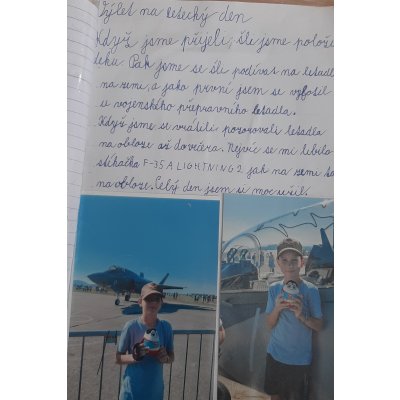 Výlet na letecký den
Když jsme přjeli, šli jsme položi
deku. Pak jsme se šli podívat na letadl
na zemi, a jako první jsem se vyfotil
u vojenského přepravního letadla.
Když jsme se vrátili pozorovali letadla
na obloze až do večera. Nejvíc se mi líbilo
stíhačka F-35 A LIGHTNING 2 jak na zemi ta
na obloze. Celý den jsem si moc užil.